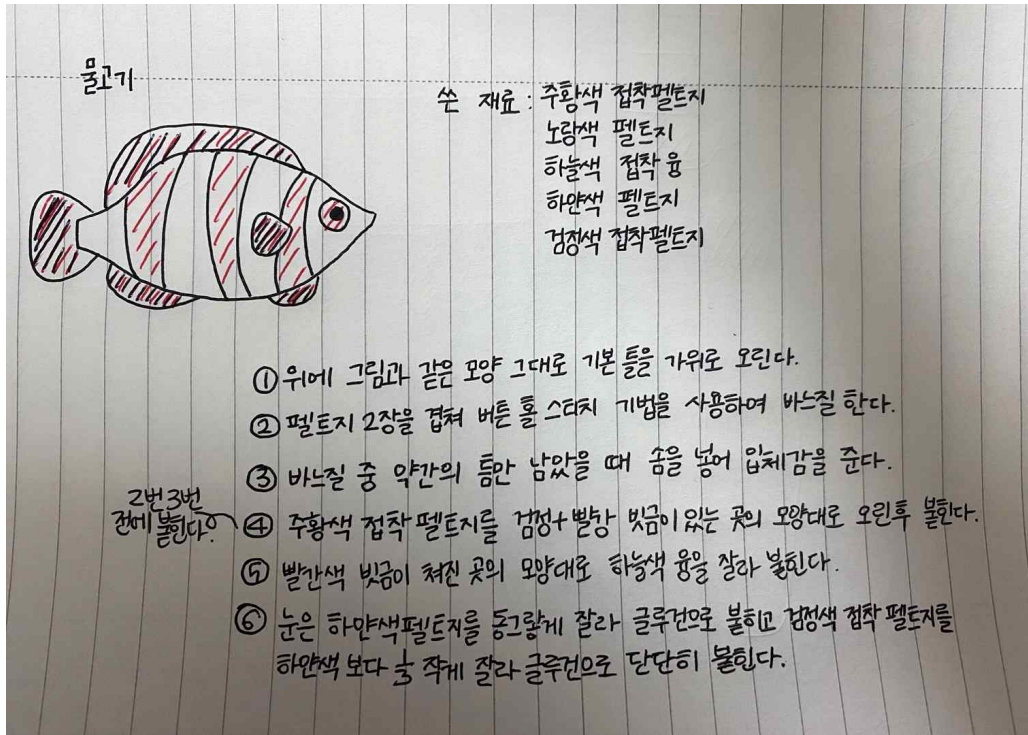 물고기
쓴 재료 : 주황색 접착펠트지
노랑색 펠트지
하늘색 접착융
하얀색 펠트지
검정색 접착펠트지
① 위에 그림과 같은 모양 그대로 기본 틀을 가위로 오린다.
② 펠트지 2장을 겹쳐 버튼 홀 스티치 기법을 사용하여 바느질 한다.
③ 바느질 중 약간의 틈만 남았을 때 솜을 넣어 입체감을 준다.
2번 3번
전에 붙힌다.
④ 주황색 접착 펠트지를 검정+빨강 빗금이 있는 곳의 모양대로 오린후 붙힌다.
⑤ 빨간색 빗금이 쳐진 곳의 모양대로 하늘색 융을 잘라 붙힌다.
⑥ 눈은 하얀색펠트지를 동그랗게 잘라 글루건으로 붙히고 검정색 접착 펠트지를
하얀색 보다 작게 잘라 글루건으로 단단히 붙힌다.